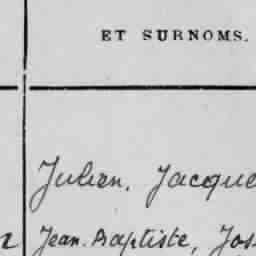 ET SURNOMS.
Julien, Jacque
Jean-Baptiste, Jos